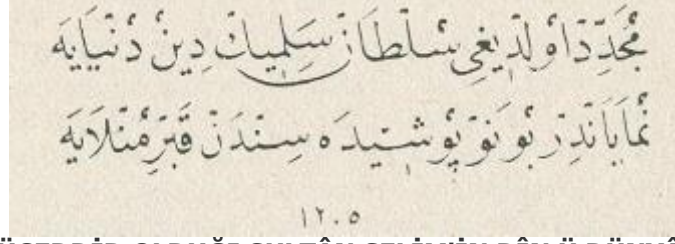 مُجَدِّدْ اوْلْدِيغِى سُلْطَانْ سَلِيمِكْ دِينْ دُنْيَايَه
نُمَايَانْدِرْ بُو نَوْ پُوشِيدَه سِنْدَنْ قَبْرِ مُنْلَايَه
١٢٠٥